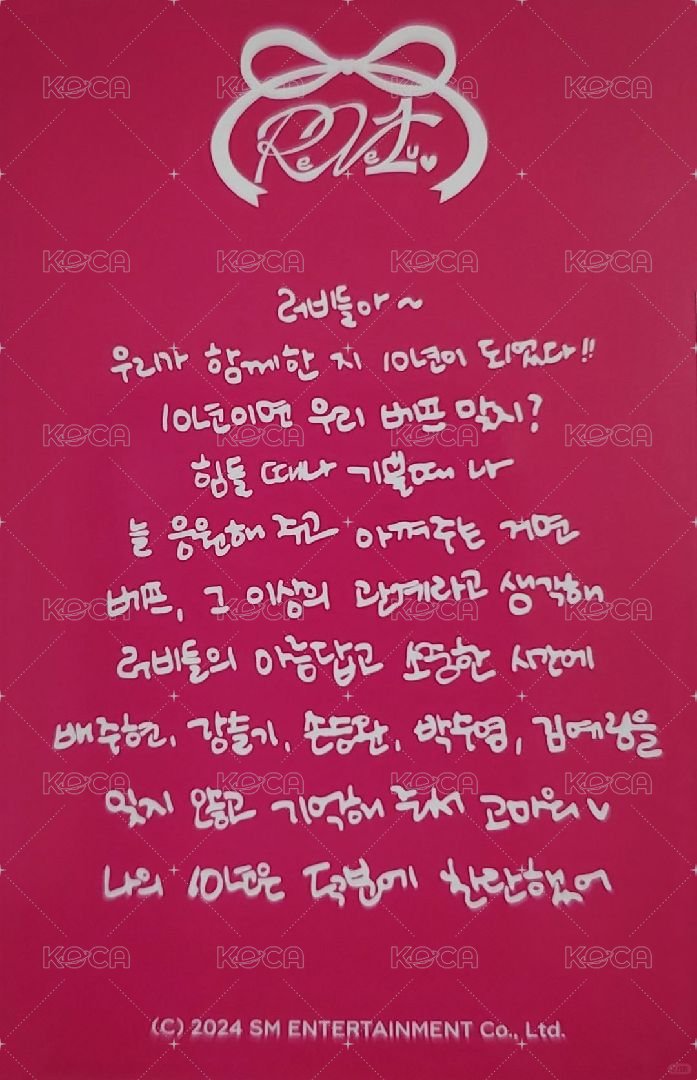 ReVeLuv
러비들아~
우리가 함께한 지 10년이 되었다!!
10년이면 우리 베프 맞지?
힘들 때나 기쁠때나
늘 응원해 주고 아껴주는 거면
베프, 그 이상의 관계라고 생각해
러비들의 아름답고 소중한 시간에
배주현, 강슬기, 손승완, 박수영, 김예림을
잊지 않고 기억해 줘서 고마워♥
나의 10년은 덕분에 찬란했어
(C) 2024 SM ENTERTAINMENT Co., Ltd.
KOCA